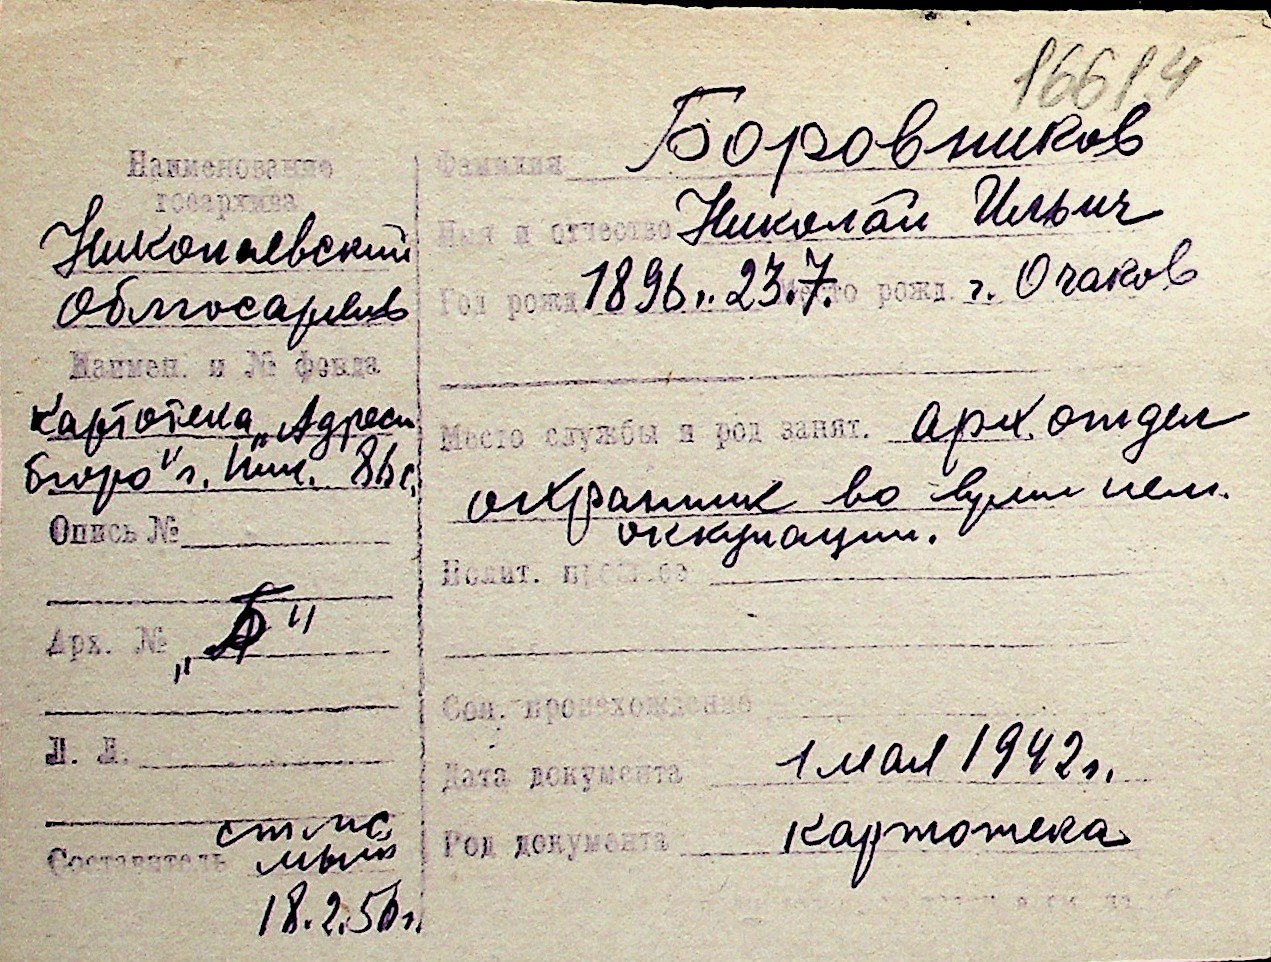 16614
Наименование
госархива
Николаевский
облгосархив
Наимен. и № фонда
картотека „Адресн.
бюро" г. Ник.
Опись №
Арх. № „Б"
Л. Л.
Составитель
18.2.50 г.
Фамилия Боровников
Имя и отчество Николай Ильич
Год рожд. 1896 г. 23.7. Место рожд. г. Очаков
Место службы и род занят. арх. отдел
охранник во время нем.
оккупации.
Полит. прошлое
Соц. происхождение
Дата документа 1 мая 1942 г.
Род документа картотека